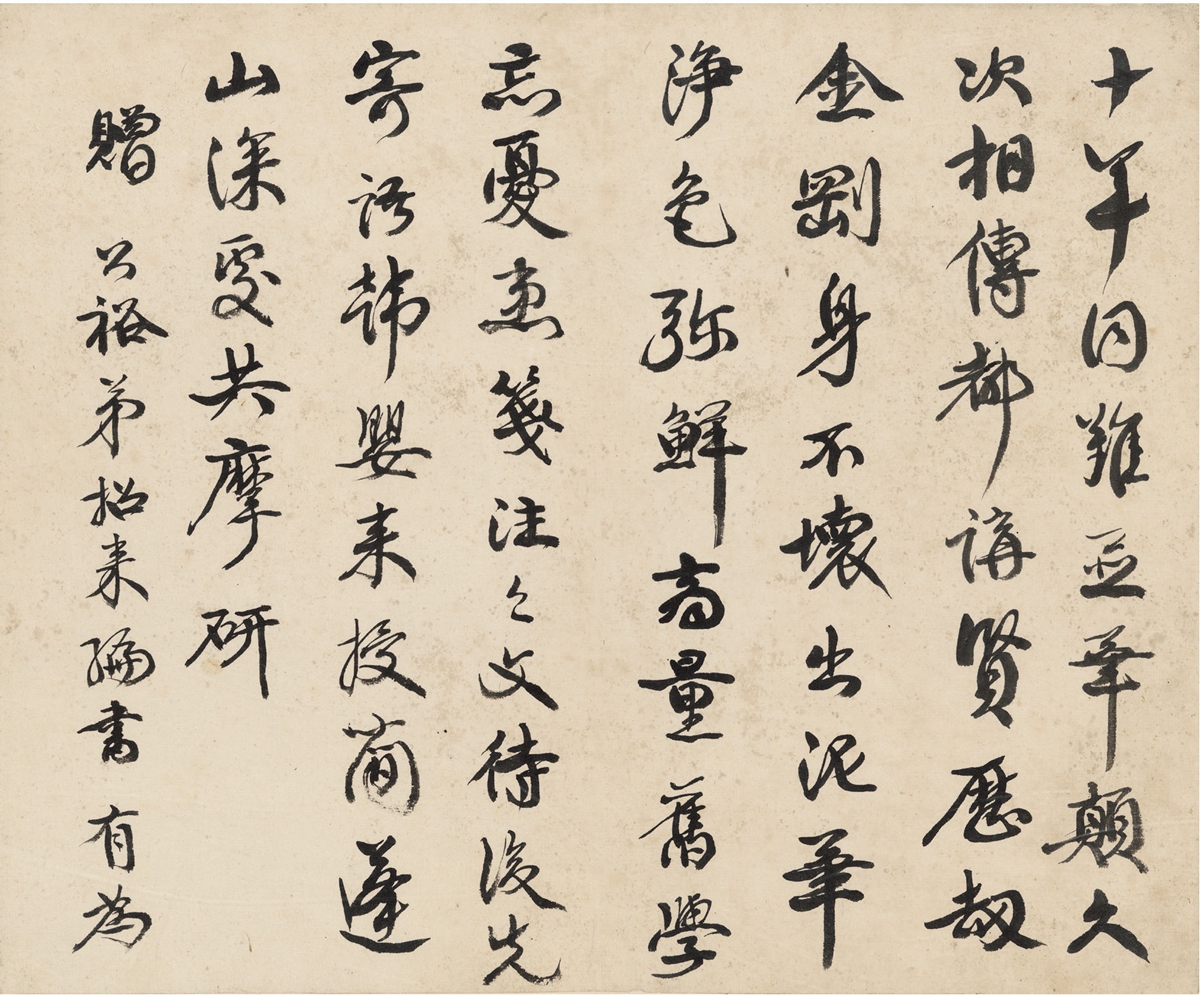 十年同難並華顛久
次相傳都講賢歷劫
金剛身不壞出泥華
淨色彌鮮商量舊學
忘憂患箋注之文待後先
寄語韓嬰来授簡蓬
山深處共摩研
贈 公裕弟招来編書 有為